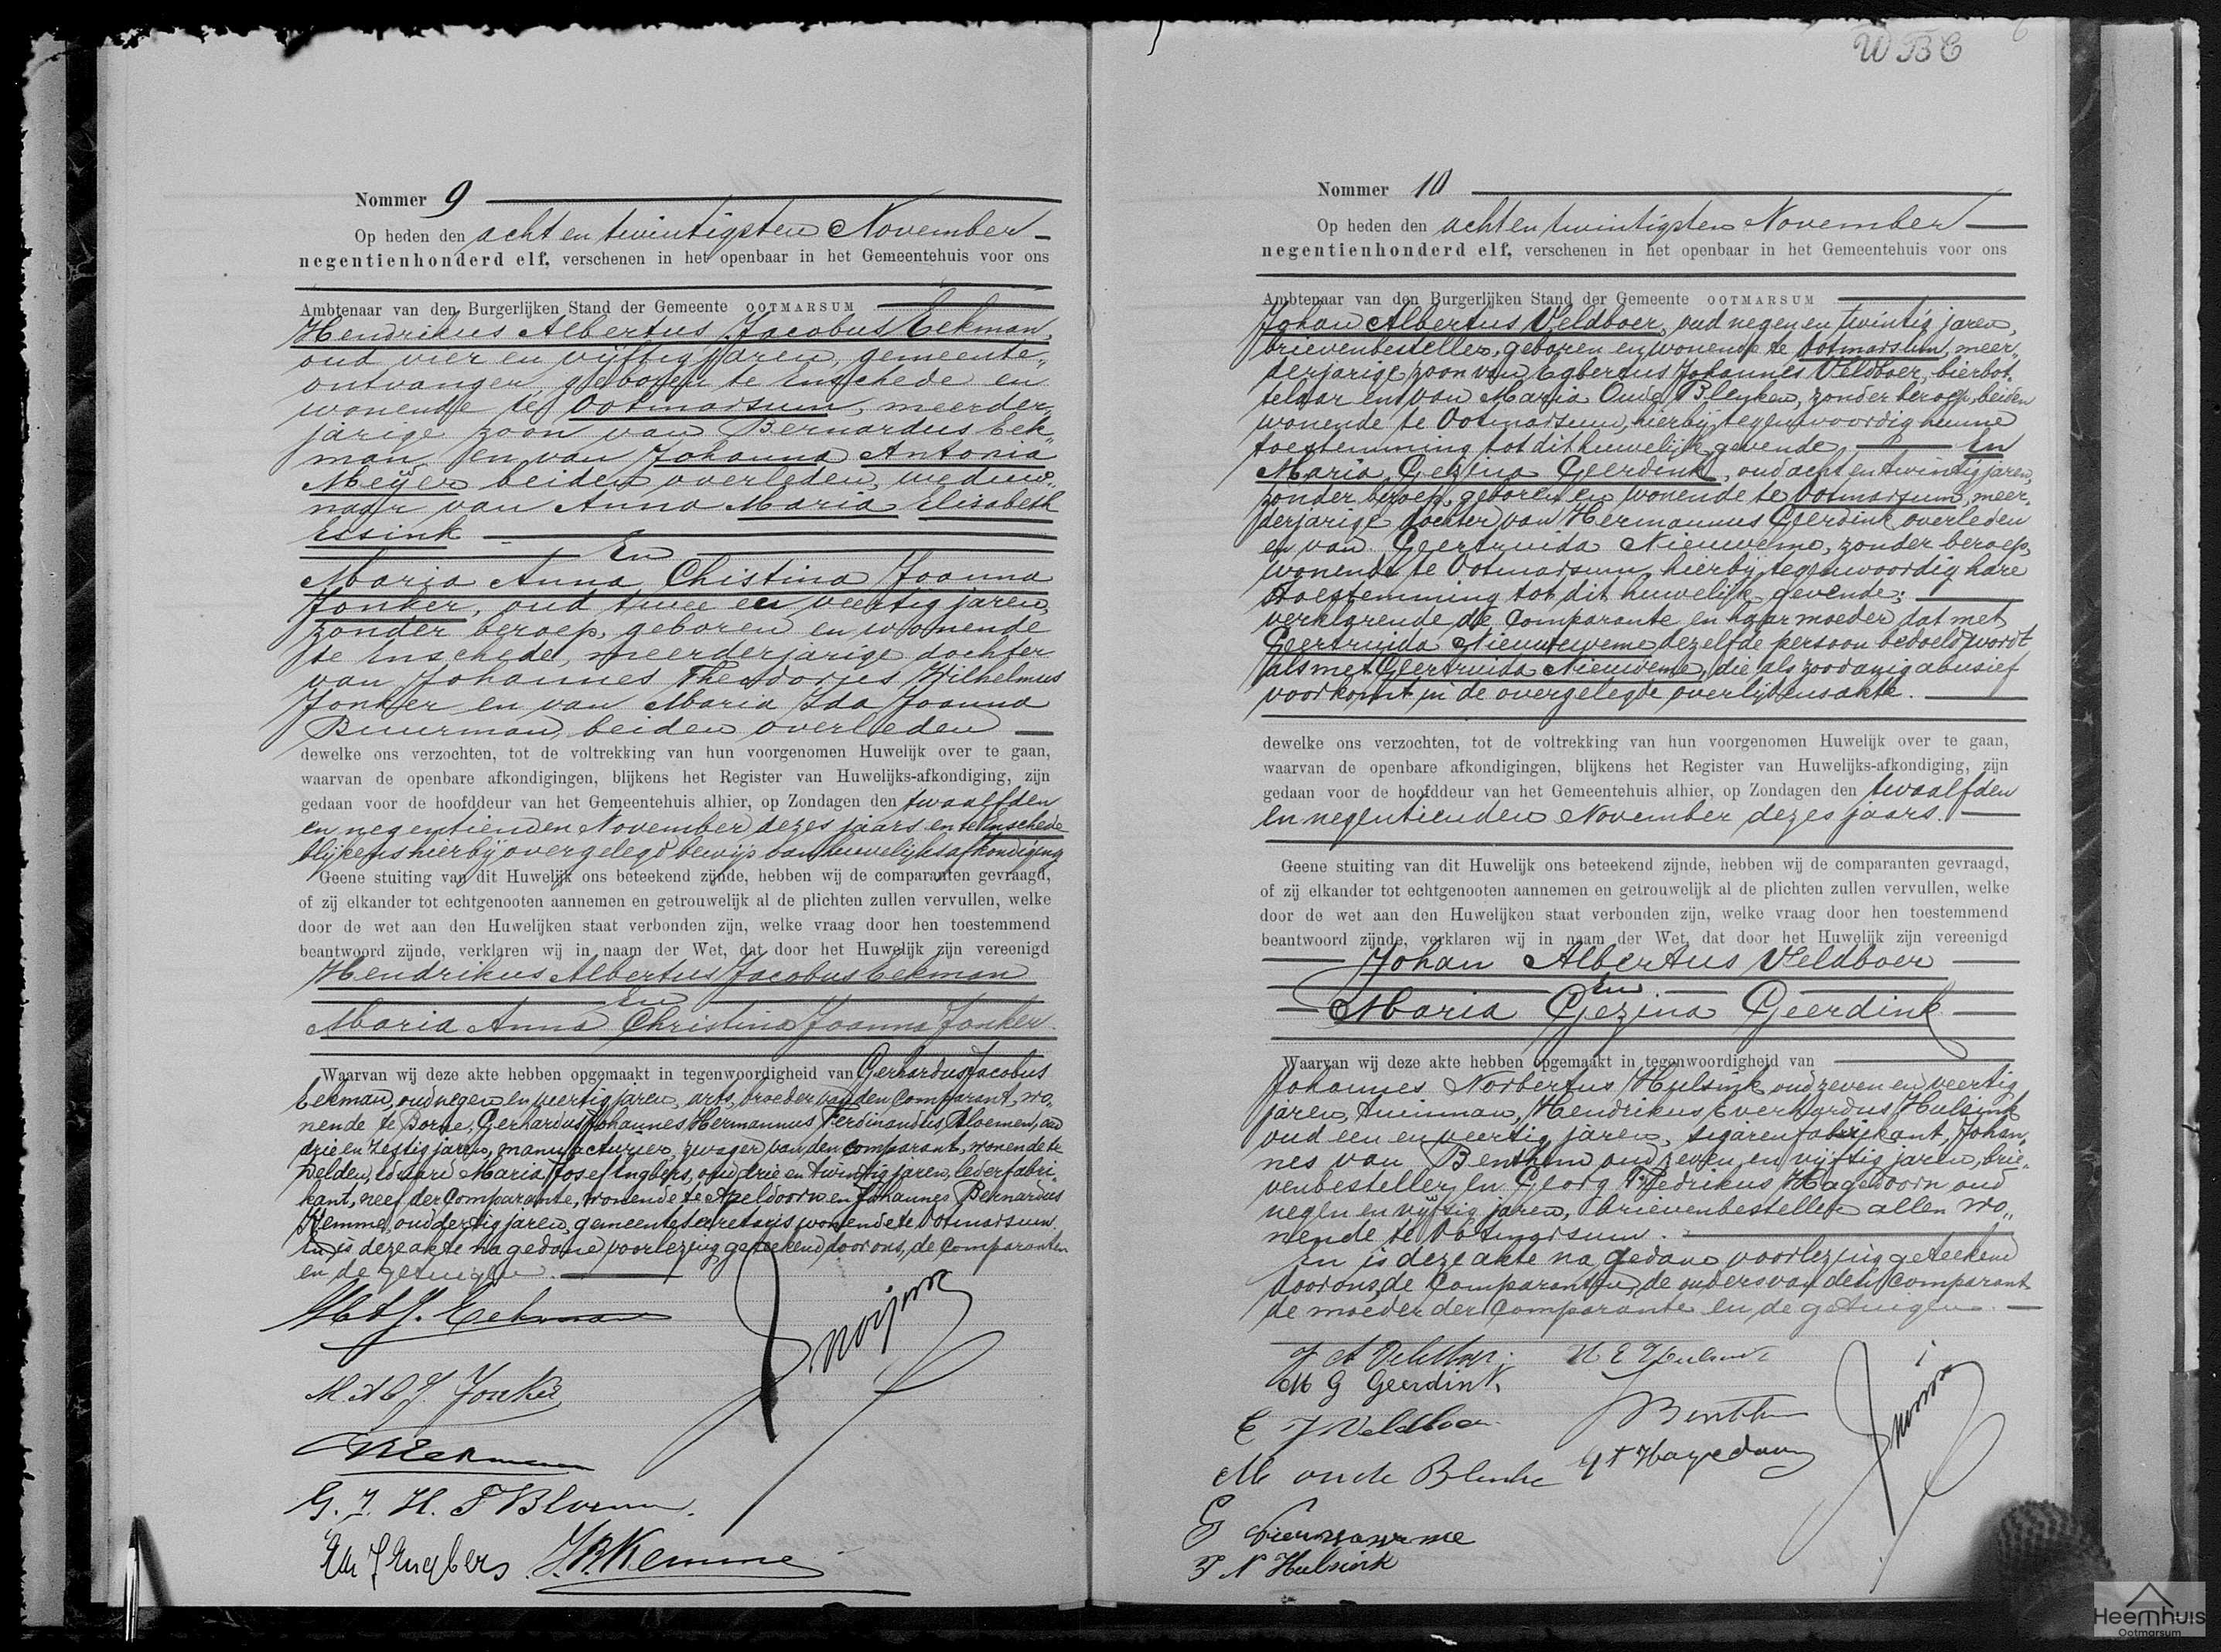 Nommer 9
Op heden den acht en twintigsten November
negentienhonderd elf, verschenen in het openbaar in het Gemeentehuis voor ons
Ambtenaar van den Burgerlijken Stand der Gemeente OOTMARSUM
Hendrikus Albertus Jacobus Eekman,
oud vier en vijftig jaren, gemeente„
ontvanger geboren te Enschede en
wonende te Ootmarsum, meerder„
jarige zoon van Bernardus Eek„
man en van Johanna Antonia
Meijer beiden overleden, weduw„
naar van Anna Maria Elisabeth
Essink
En
Maria Anna Chistina Joanna
Jonker, oud twee en veertig jaren,
zonder beroep, geboren en wonende
te Enschede, meerderjarige dochter
van Johannes Theodorus Wilhelmus
Jonker en van Maria Ida Joanna
Buurman, beiden overleden
dewelke ons verzochten, tot de voltrekking van hun voorgenomen Huwelijk over te gaan,
waarvan de openbare afkondigingen, blijkens het Register van Huwelijks-afkondiging, zijn
gedaan voor de hoofddeur van het Gemeentehuis alhier, op Zondagen den twaalfden
en negentienden November dezes jaars en te Enschede
blijkens hierbij overgelegd bewijs van huwelijksafkondiging
Geene stuiting van dit Huwelijk ons beteekend zijnde, hebben wij de comparanten gevraagd,
of zij elkander tot echtgenooten aannemen en getrouwelijk al de plichten zullen vervullen, welke
door de wet aan den Huwelijken staat verbonden zijn, welke vraag door hen toestemmend
beantwoord zijnde, verklaren wij in naam der Wet, dat door het Huwelijk zijn vereenigd
Hendrikus Albertus Jacobus Eekman
En
Maria Anna Christina Joanna Jonker.
Waarvan wij deze akte hebben opgemaakt in tegenwoordigheid van Gerhardus Jacobus
Eekman, oud negen en veertig jaren, arts, broeder van den Comparant, wo„
nende te Borne, Gerhardus Johannes Hermannus Ferdinandus Bloemen, oud
drie en zestig jaren, manufacturier, zwager van den comparant, wonende te
Delden, Eduard Maria Josef Engbers, oud drie en twintig jaren, lederfabri„
kant, neef der Comparante, wonende te Apeldoorn en Johannes Bernardus
Kemme, oud dertig jaren, gemeentesecretaris wonende te Ootmarsum.
En is deze akte na gedane voorlezing geteekend door ons, de Comparanten
en de getuigen.
H A J. Eekman
M. A C J. Jonker
Eekman
G. J. H. F Bloemen.
Ed J Engbers. J. B. Kemme
W B C
Nommer 10
Op heden den acht en twintigsten November
negentienhonderd elf, verschenen in het openbaar in het Gemeentehuis voor ons
Ambtenaar van den Burgerlijken Stand der Gemeente OOTMARSUM
Johan Albertus Veldboer, oud negen en twintig jaren,
brievenbesteller, geboren en wonende te Ootmarsum, meer„
derjarige zoon van Egbertus Johannes Veldboer, bierbot„
telaar en van Maria Oude Blenken, zonder beroep, beiden
wonende te Ootmarsum, hierbij tegenwoordig hunne
toestemming tot dit huwelijk gevende, En
Maria Gezina Geerdink, oud acht en twintig jaren,
zonder beroep, geboren en wonende te Ootmarsum, meer„
derjarige dochter van Hermannus Geerdink overleden
en van Geertruida Nieuweme, zonder beroep,
wonende te Ootmarsum, hierbij tegenwoordig hare
toestemming tot dit huwelijk gevende;
verklarende de Comparante en haar moeder dat met
Geertruida Nieuweweme dezelfde persoon bedoeld wordt
als met Geertruida Nieuweme, die als zoodanig abusief
voorkomt in de overgelegde overlijdensakte.
dewelke ons verzochten, tot de voltrekking van hun voorgenomen Huwelijk over te gaan,
waarvan de openbare afkondigingen, blijkens het Register van Huwelijks-afkondiging, zijn
gedaan voor de hoofddeur van het Gemeentehuis alhier, op Zondagen den twaalfden
en negentienden November dezes jaars.
Geene stuiting van dit Huwelijk ons beteekend zijnde, hebben wij de comparanten gevraagd,
of zij elkander tot echtgenooten aannemen en getrouwelijk al de plichten zullen vervullen, welke
door de wet aan den Huwelijken staat verbonden zijn, welke vraag door hen toestemmend
beantwoord zijnde, verklaren wij in naam der Wet, dat door het Huwelijk zijn vereenigd
Johan Albertus Veldboer
En
Maria Gezina Geerdink
Waarvan wij deze akte hebben opgemaakt in tegenwoordigheid van
Johannes Norbertus Hulsink, oud zeven en veertig
jaren, tuinman, Hendrikus Everhardus Hulsink
oud een en veertig jaren, sigarenfabrikant, Johan„
nes van Benthem oud zeven en vijftig jaren, brie„
venbesteller en Georg Fredrikus Hagedoorn oud
negen en vijftig jaren, brievenbesteller allen wo„
nende te Ootmarsum.
En is deze akte na gedane voorlezing geteekend
door ons, de Comparanten, de ouders van den Comparant
de moeder der Comparante en de getuigen.
J A Veldboer. H E Hulsink
M G Geerdink
E J Veldboer Benthem
M oude Blenke G F Hagedoorn
G Nieuweweme
J N Hulsink
Heemhuis
Ootmarsum